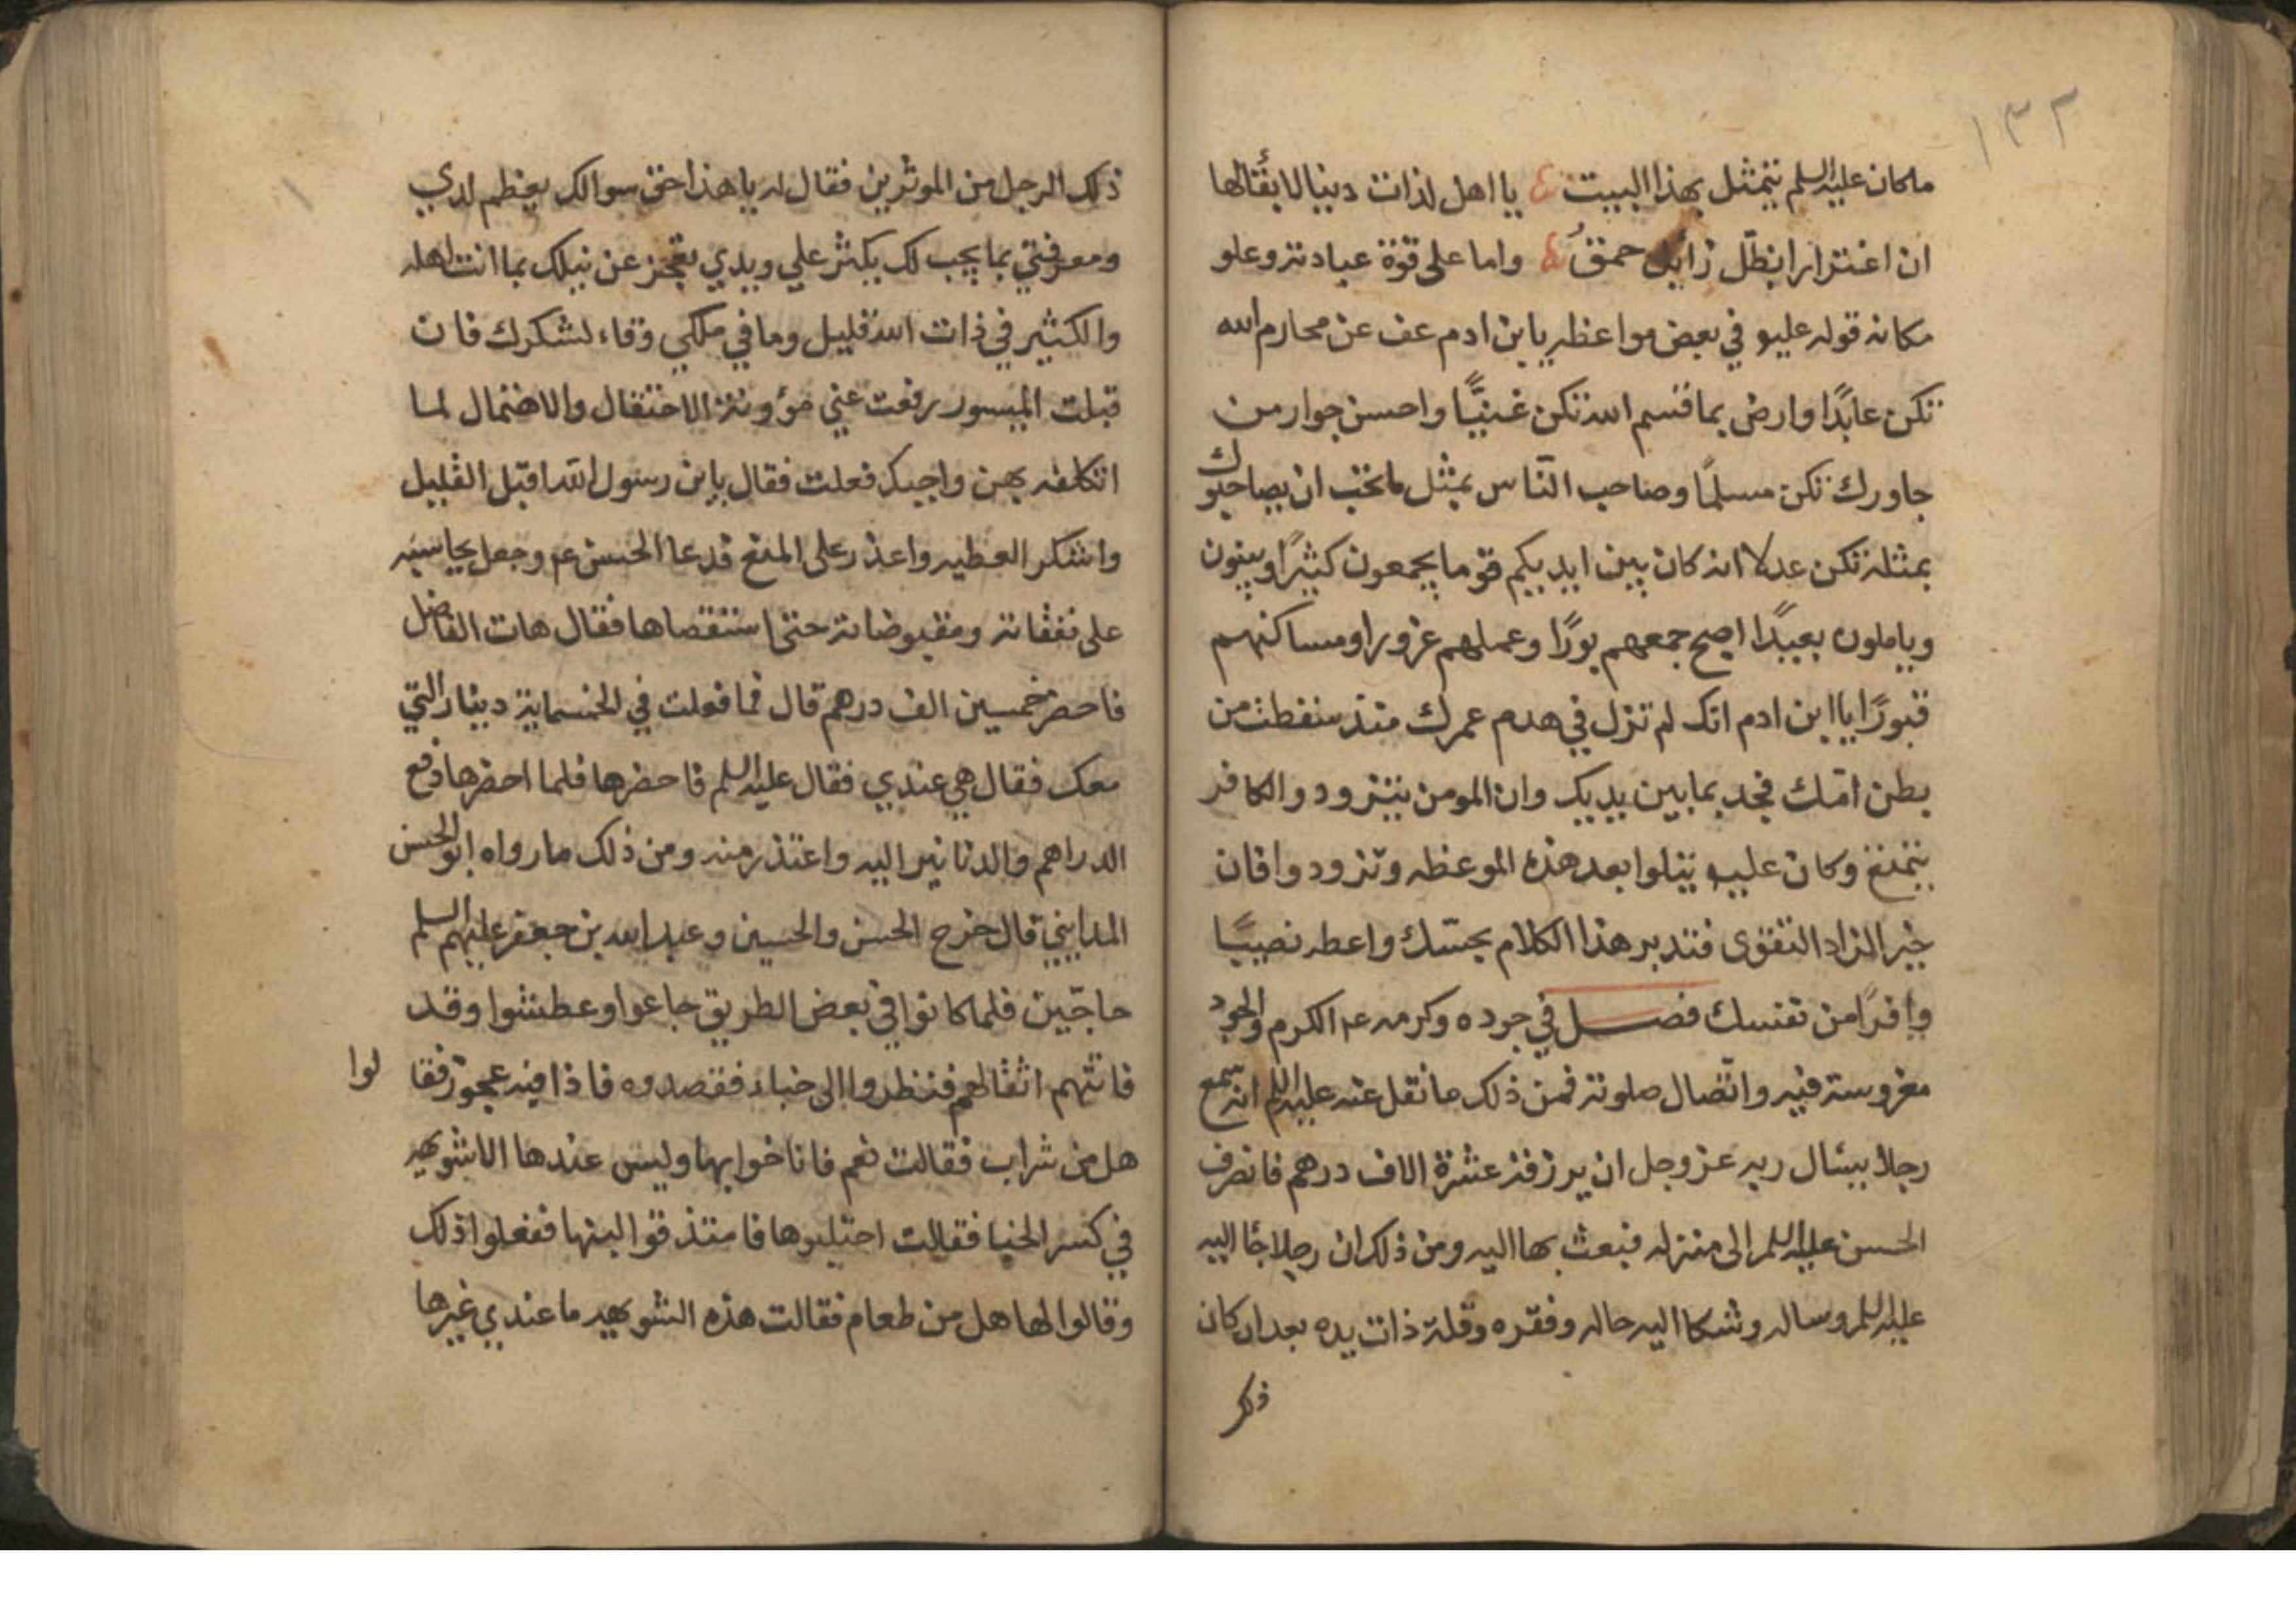 ١٣٢
ما كان عليه السلم يتمثل بهذا البيت يا اهل لذات دنيا لا بقآء لها
ان اغترارا بظل زايل حمق واما على قوة عبادته وعلو
مكانه قوله عليه في بعض مواعظه يا بن ادم عف عن محارم الله
تكن عابدًا وارض بما قسم الله تكن غنيًّا واحسن جوار من
جاورك تكن مسلمًا وصاحب النّاس بمثل ما تحب ان يصاحبوك
بمثله تكن عدلا انه كان بين ايديكم قوما يجمعون كثيرًا ويبنون
وياملون بعيدًا اصبح جمعهم بورًا وعملهم غرورا ومساكنهم
قبورًا يا ابن ادم انك لم تزل في هدم عمرك منذ سقطت من
بطن امّك فجد بما بين يديك وان المومن يتزود والكافر
يتمتع وكان عليه يتلوا بعد هذه الموعظه وتزودوا فان
خير الزاد التقوى فتدبر هذا الكلام بحسّك واعطه نصيبًا
وافرًا من نفسك فصل في جوده وكرمه عم الكرم والجود
مغروسة فيه واتّصال صلوته فمن ذلك ما نقل عنه عليه السلم انه سمع
رجلا يسئال ربه عز وجل ان يرزقه عشرة الاف درهم فانصرف
الحسن عليه السلم الى منزله فبعث بها اليه ومن ذلك ان رجلا جآ اليه
عليه السلم وساله وشكا اليه حاله وفقره وقلة ذات يده بعد ان كان
ذلك
ذلك الرجل من الموثرين فقال له يا هذا حق سوالك يعظم لدي
ومعرفتي بما يجب لك يكثر علي ويدي تعجز عن نيلك بما انت اهله
والكثير في ذات الله قليل وما في ملكي وفاء لشكرك فان
قبلت الميسور رفعت عني مؤونة الاحتفال والاهتمال لما
اتكلفه بهن واجبك فعلت فقال يا بن رسول الله اقبل القليل
واشكر العطيه واعذر على المنع فدعا الحسن عم وجعل يحاسبه
على نفقاته ومقبوضاته حتى استقصاها فقال هات الفاضل
فاحضر خمسين الف درهم قال فما فعلت في الخمسماية دينار التي
معك فقال هي عندي فقال عليه السلم فاحضرها فلما احضرها دفع
الدراهم والدنانير اليه واعتذر منه ومن ذلك ما رواه ابو الحسن
المدايني قال خرج الحسن والحسين وعبد الله بن جعفر عليهم السلم
حاجّين فلما كانوا في بعض الطريق جاعوا وعطشوا وقد
فاتتهم اثقالهم فنظروا الى خباء فقصدوه فاذا فيه عجوز فقا لوا
هل من شراب فقالت نعم فاناخوا بها وليس عندها الا شويهه
في كسر الخبا فقالت احتلبوها فامتذقوا لبنها ففعلوا ذلك
وقالوا لها هل من طعام فقالت هذه الشويهه ما عندي غيرها